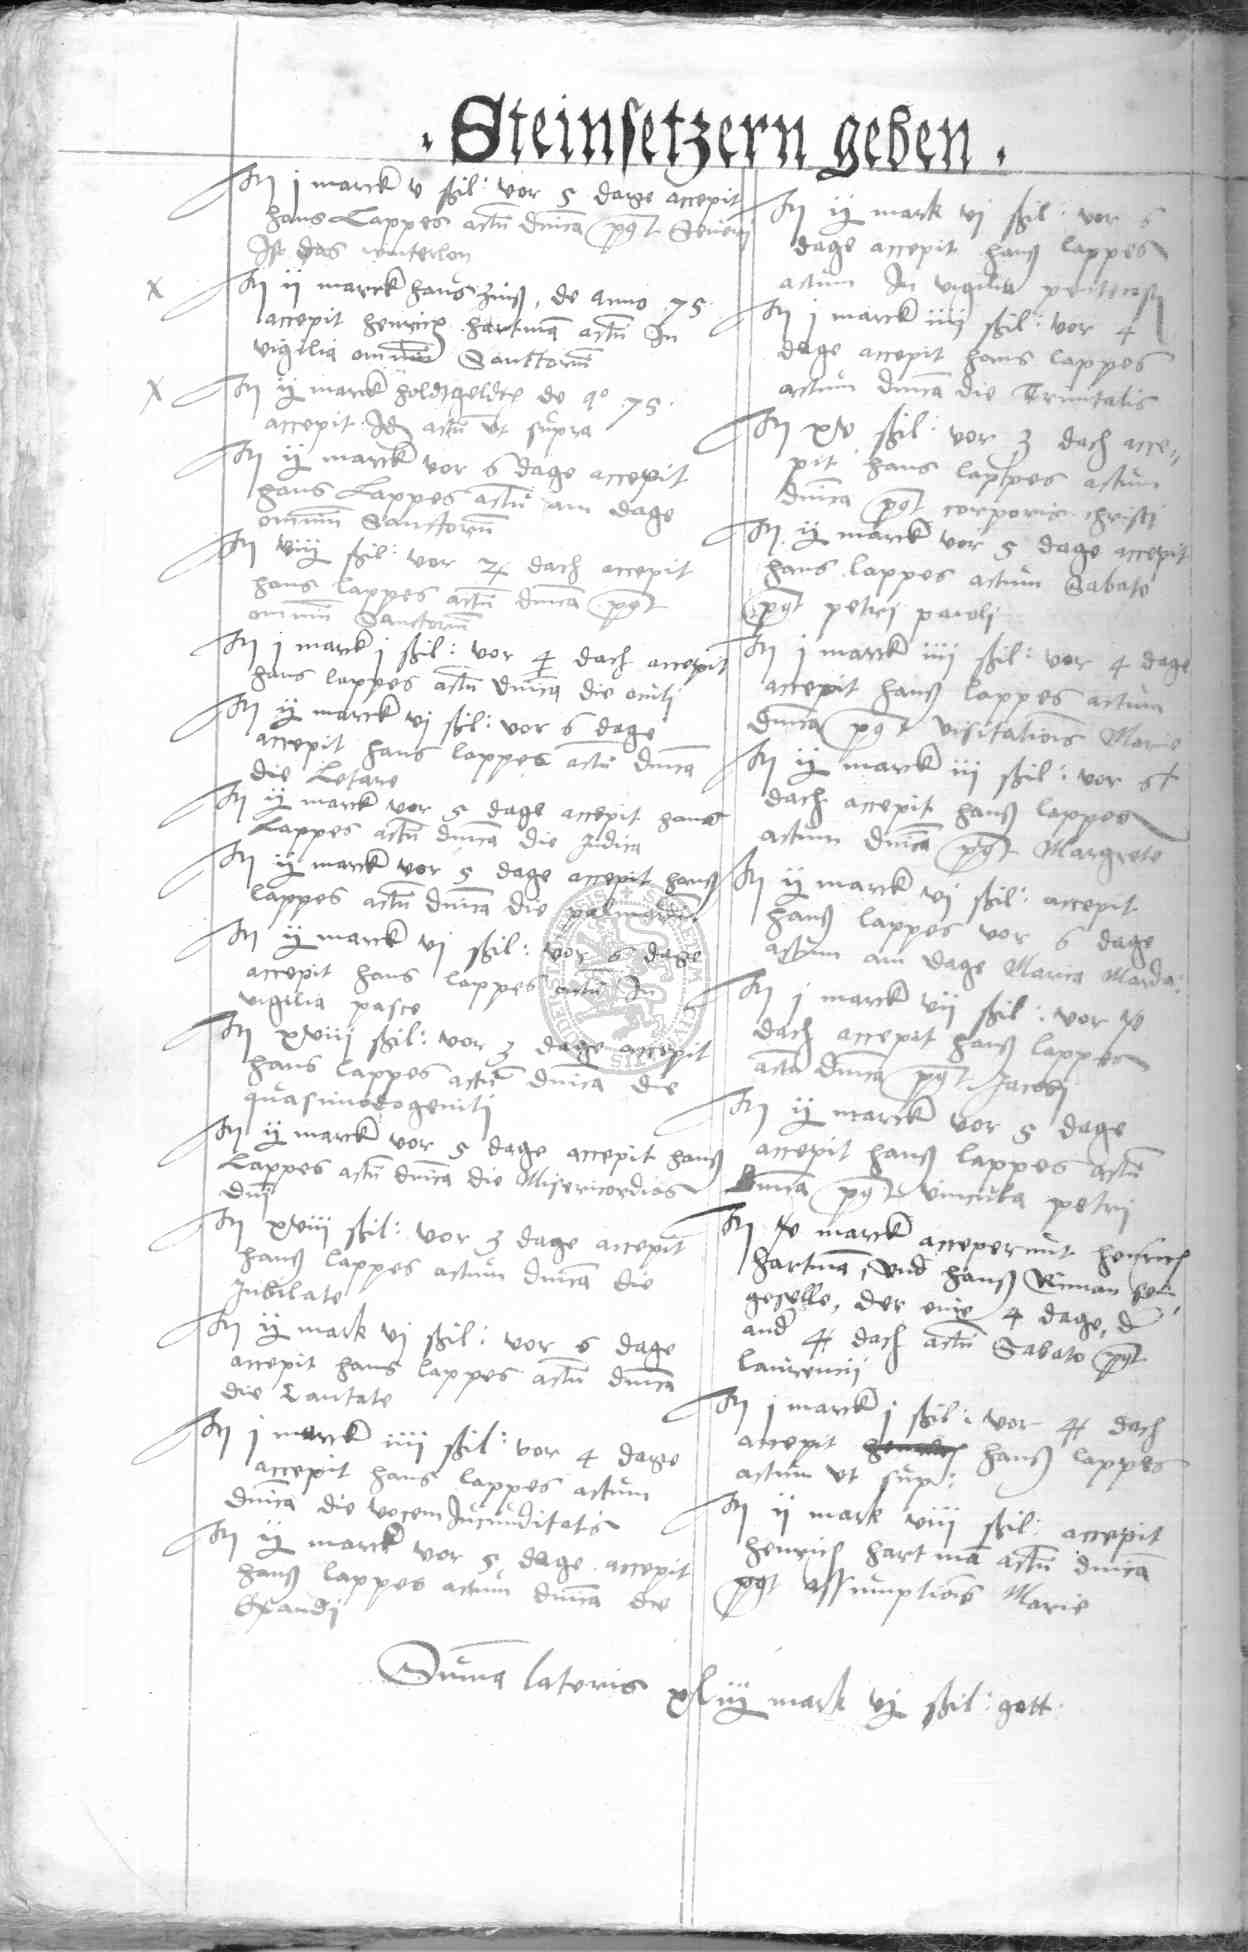 . Steinsetzern geben .
It j marck v ßil : vor 5 dage accepit
hans Lappes actū dnīca pꝰt Severi
Ist das winterlon
x It ij marck hans zinß, de Anno 75
accepit henrich hartmā actū In
vigilia omniū Sanctorū
x It ij marck holdtgeldes de aº 75.
accepit Idē actū vt supra
It ij marck vor 6 dage accepit
hans Lappes actū am dage
omniū Sanctorū
It viij ßil : vor dach accepit
hans lappes actū dnīca pꝰt
omniū Sanctorū
It j marck j ßil : vor 4 dach accepit
hans lappes actū dnīca die oculi
It ij marck vj ßil : vor 6 dage
accepit hans lappes actū dnīca
die Letare
It ij marck vor 5 dage accepit hans
Lappes actū dnīca die Judica
It ij marck vor 5 dage accepit hanß
lappes actū dnīca die palmarū
It ij marck vj ßil : vor 6 dage
accepit hans lappes actū In
vigilia pasce
It xviij ßil : vor 3 dage accepit
hans lappes actū dnīca die
quasimodogeniti
It ij marck vor 5 dage accepit hanß
Lappes actū dnīca die Misericordias
dnj
It xviij ßil : vor 3 dage accepit
hanß lappes actum dnīca die
Jubilate
It ij mark vj ßil : vor 6 dage
accepit hans lappes actū dnīca
die Cantate
It j marck iiij ßil : vor 4 dage
accepit hans lappes actum
dnīca die vocem Jucunditatis
It ij marck vor 5 dage accepit
hanß lappes actum dnīca die
Exaudi
It ij mark vj ßil : vor 6
dage accepit hanß lappes
actum In vigilia
It j marck iiij ßil : vor 4
dage accepit hans lappes
actum dnīca die Trinitatis
It xv ßil : vor 3 dach acce=
pit hans lappes actum
dnīca pꝰt corporis christi
It ij marck vor 5 dage accepit
hans lappes actum Sabato
pꝰt petri pauli
It j marck iiij ßil : vor 4 dage
accepit hanß lappes actum
dnīca pꝰt visitationis Marie
It ij marck iij ßil : vor
dach accepit hanß lappes
actum dnīca pꝰt Margrete
It ij marck vj ßil : accepit
hanß lappes vor 6 dage
actum am dage Maria Magda:
It j marck vij ßil : vor
dach accepit hanß lappes
actū dnīca pꝰt Jacobj
It ij marck vor 5 dage
accepit hanß lappes actū
Dnīca pꝰt vincula petri
It marck acceperunt henrich
hartmā, vnd hanß sein
geselle, der eine 4 dage, d
ander dach actū Sabato pꝰt
laurencij
It j marck j ßil : vor dach
accepit hanß lappes
actum vt sup :
It ij mark viij ßil : accepit
henrich hartmā actū dnīca
pꝰt assumptiōis Marie
Summa lateris xliij mark vj ßil : gott :